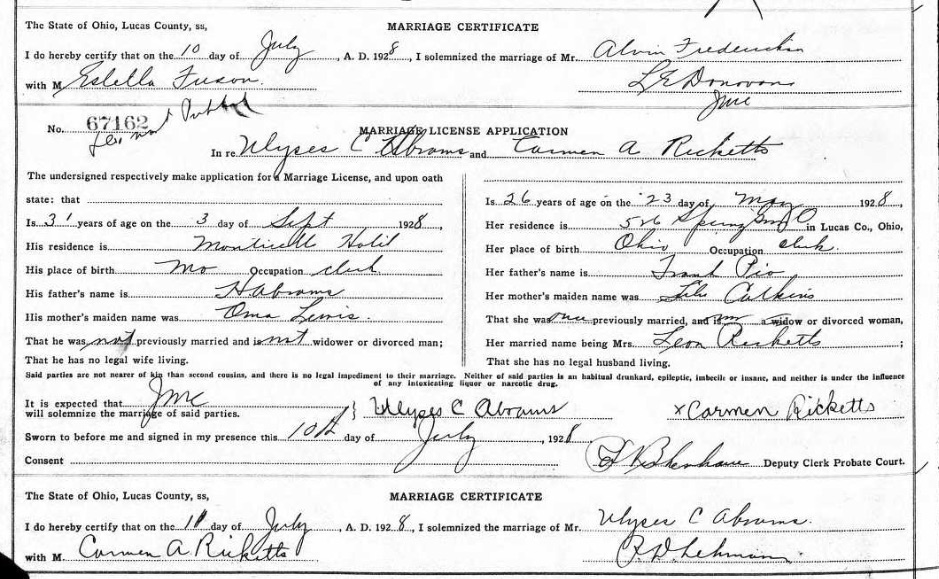 The State of Ohio, Lucas County, ss, MARRIAGE CERTIFICATE
I do hereby certify that on the 10 day of July, A. D. 1928, I solemnized the marriage of Mr. Alvin
with M Estella Fuson. L E Donovan
No. 67162
MARRIAGE LICENSE APPLICATION
In re Ulyses C Abrams and Carmen A Ricketts
The undersigned respectively make application for a Marriage License, and upon oath
state: that
Is 31 years of age on the 3 day of Sept 1928,
His residence is
His place of birth Mo Occupation clerk
His father's name is H Abrams
His mother's maiden name was Oma Lewis.
That he was not previously married and is not widower or divorced man;
That he has no legal wife living.
Is 26 years of age on the 23 day of May 1928,
Her residence is 526 in Lucas Co., Ohio,
Her place of birth Ohio Occupation clerk.
Her father's name is Frank
Her mother's maiden name was
That she was once previously married, and is a widow or divorced woman,
Her married name being Mrs. Leon Ricketts;
That she has no legal husband living.
Said parties are not nearer of kin than second cousins, and there is no legal impediment to their marriage. Neither of said parties is an habitual drunkard, epileptic, imbecile or insane, and neither is under the influence
of any intoxicating liquor or narcotic drug.
It is expected that
will solemnize the marriage of said parties. } Ulyses C Abrams x Carmen Ricketts
Sworn to before me and signed in my presence this 10th day of July, 1928
Consent Deputy Clerk Probate Court.
The State of Ohio, Lucas County, ss, MARRIAGE CERTIFICATE
I do hereby certify that on the 11 day of July, A. D. 1928, I solemnized the marriage of Mr. Ulyses C Abrams.
with M. Carmen A Ricketts